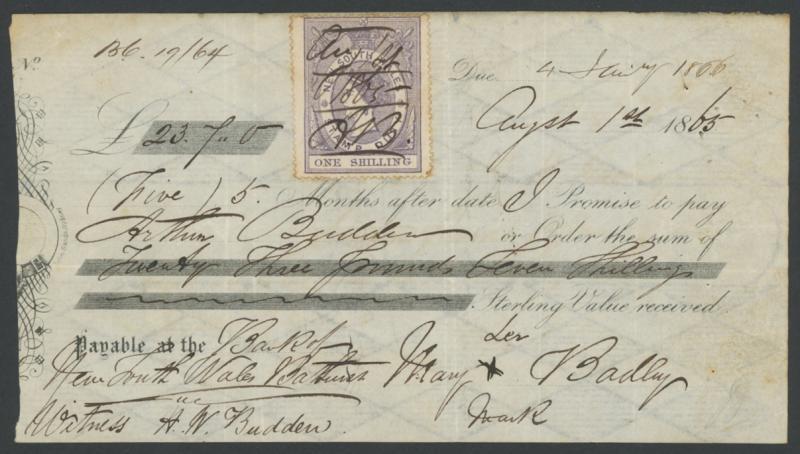 No.
B6. 19/64
NEW SOUTH WALES
STAMP DUTY
ONE SHILLING
Due 4 Jany 1866
Augst 1st 1865
£23.7.0
(Five) 5. Months after date I Promise to pay
Arthur Budden or Order the sum of
Twenty Three pounds Seven Shillings
Sterling Value received
Payable at the Bank of
New South Wales Bathurst
her
Mary X Badley
mark
Witness A. W. Budden.